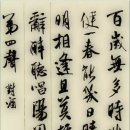 百歲無多時壯
健一春能幾日晴
明相逢且莫推
辭醉聽唱陽關
第四聲 對酒